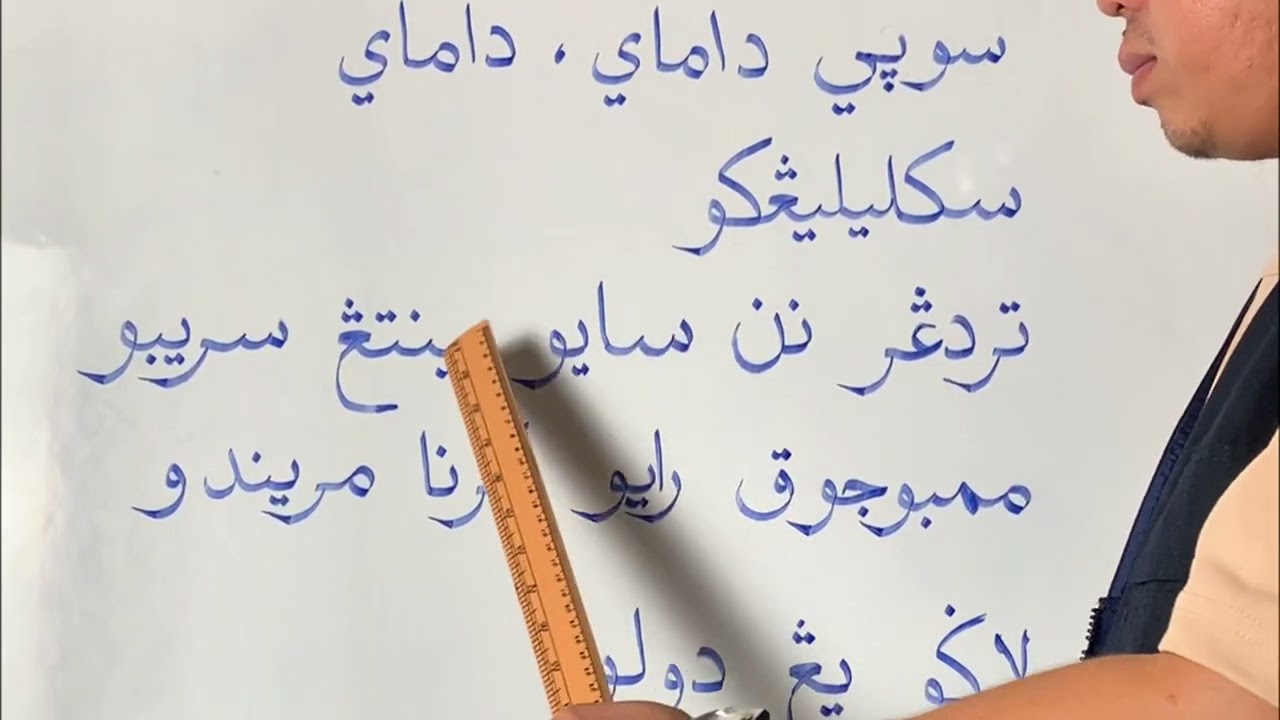 سوڤي داماي، داماي
سکليليڠکو
تردڠر نن سايو بينتڠ سريبو
ممبوجوق رايو کرنا مريندو
لاڬو يڠ دولو